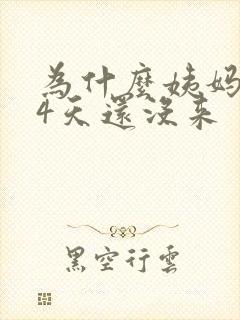 為什麼姨媽
4天還沒來
黑空行雲